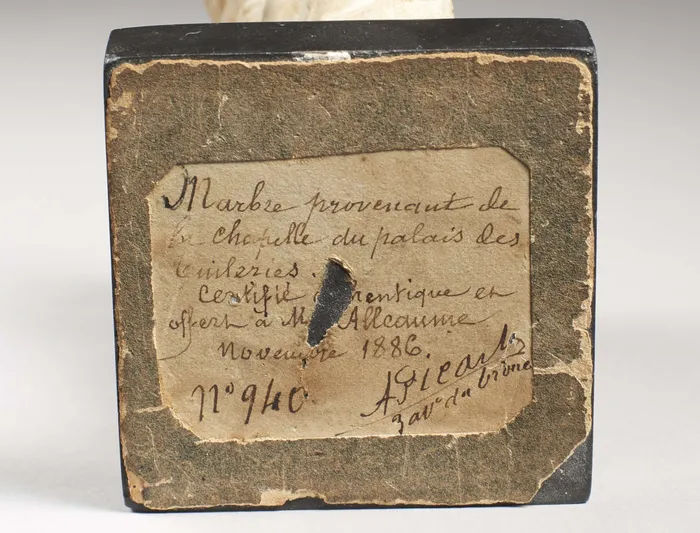 Marbre provenant de
la chapelle du palais des
Tuileries.
Certifié a hentique et
offert à M Alleaume
Novembre 1886.
N° 940
APicard
3 avᵉ du trône